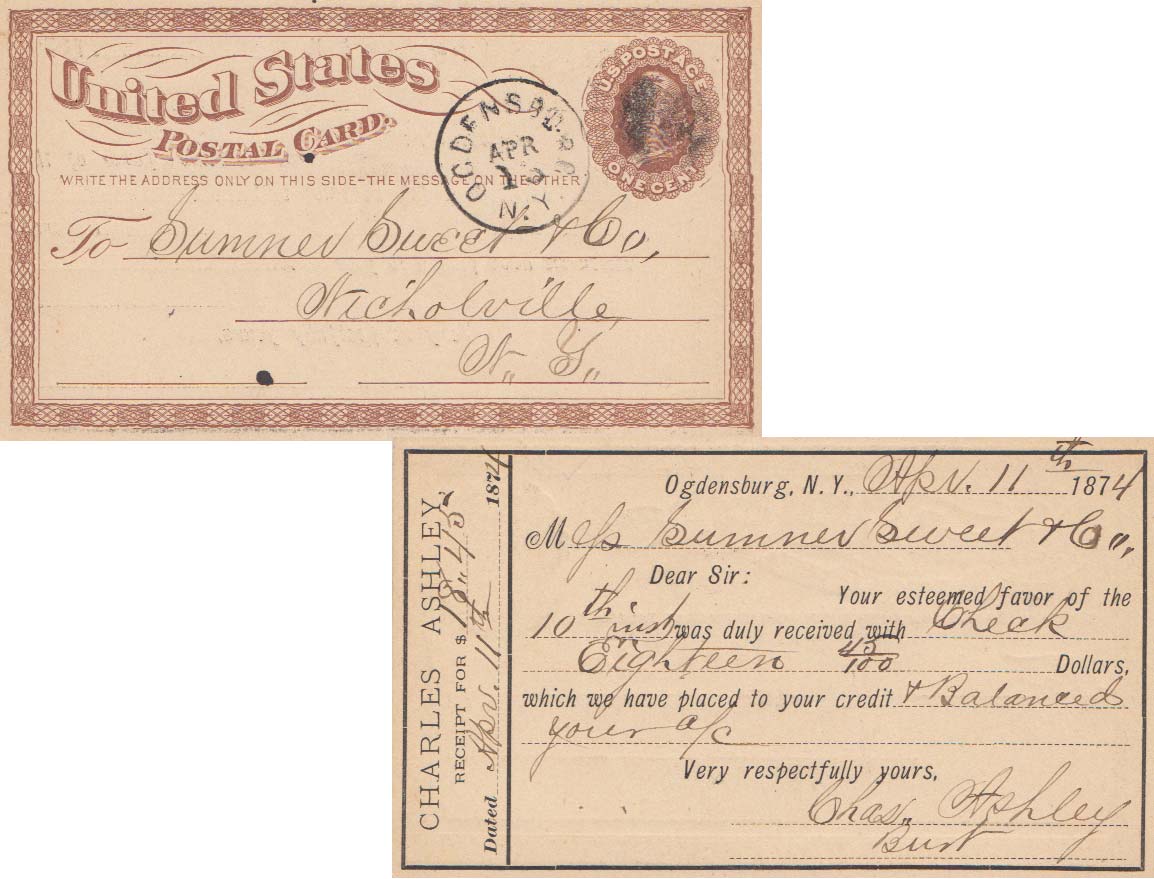 United States
POSTAL CARD.
U.S. POSTAGE
ONE CENT
OGDENSBURG
APR
13
N.Y.
WRITE THE ADDRESS ONLY ON THIS SIDE–THE MESSAGE ON THE OTHER
To Sumner Sweet & Co,
Nicholville
N. Y.
CHARLES ASHLEY,
RECEIPT FOR $ 18.45
Dated Apr. 11th 1874
Ogdensburg, N. Y., Apr. 11th 1874
Mess Sumner Sweet & Co,
Dear Sir:
Your esteemed favor of the
10th inst was duly received with Check
Eighteen 45/100 Dollars,
which we have placed to your credit & Balanced
your a/c
Very respectfully yours,
Chas. Ashley